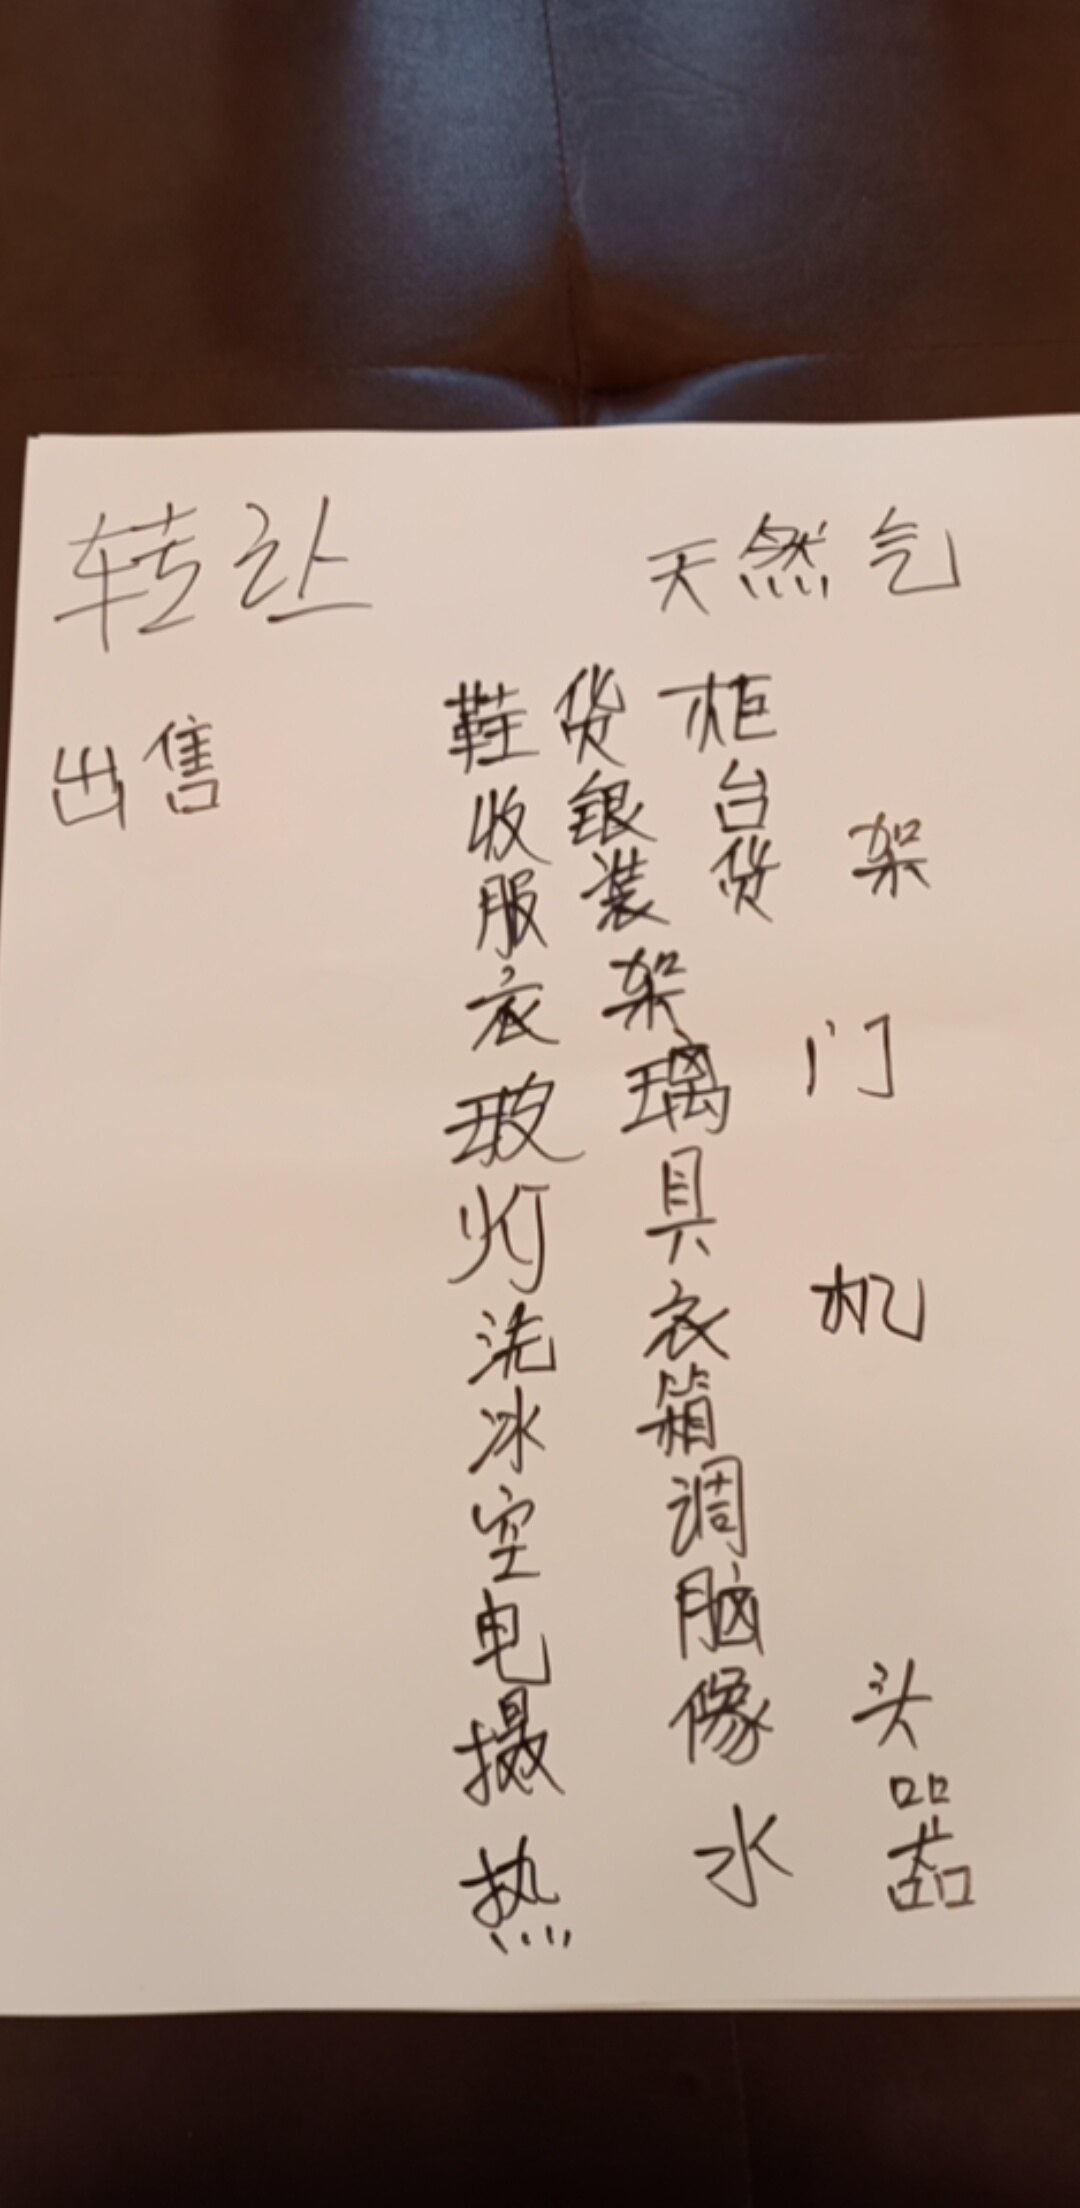 转让 天然气
出售 鞋货柜
收银台
服装货架
衣架
玻璃门
灯具
洗衣机
冰箱
空调
电脑
摄像头
热水器